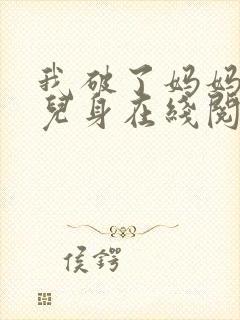 我破了妈妈
儿身在线阅
侯鍔